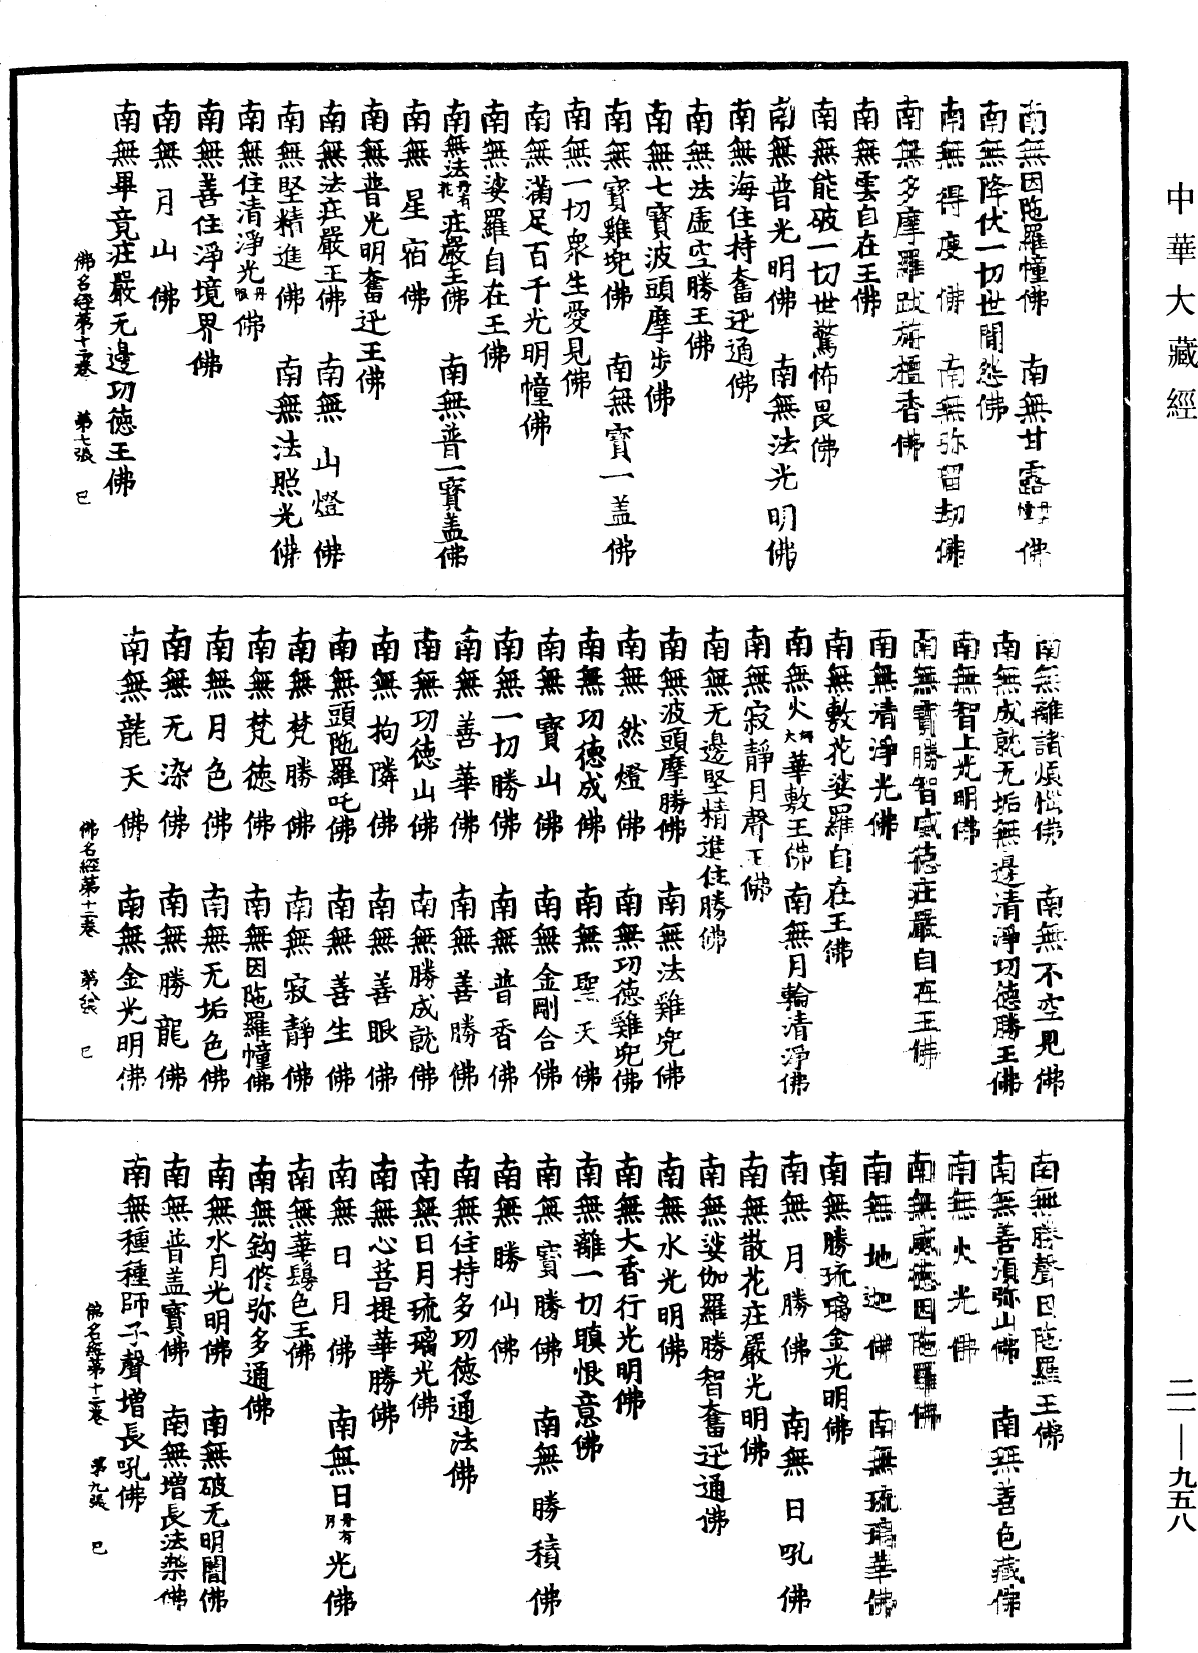 中華大藏經
南無因陁羅幢佛　南無甘露丹本幢佛
南無降伏一切世閒怨佛
南無得度佛　南無弥留劫佛
南無多摩羅跋旃檀香佛
南無雲自在王佛
南無能破一切世驚怖畏佛
南無普光明佛　南無法光明佛
南無海住持奮迅通佛
南無法虛空勝王佛
南無七寶波頭摩步佛
南無寶雞兜佛　南無寶一盖佛
南無一切衆生愛見佛
南無滿足百千光明幢佛
南無娑羅自在王佛
南無法丹有花莊嚴王佛　南無普一寶盖佛
南無星宿佛
南無普光明奮迅王佛
南無法莊嚴王佛　南無山燈佛
南無堅精進佛　南無法照光佛
南無住清淨光丹眼佛
南無善住淨境界佛
南無月山佛
南無畢竟莊嚴无邊功德王佛
佛名經第十二卷　第七張　巳
南無離諸煩惱佛　南無不空見佛
南無成就无垢無邊清淨功德勝王佛
南無智上光明佛
南無寶勝智威德莊嚴自在王佛
南無清淨光佛
南無敷花娑羅自在王佛
南無火華敷王佛　南無月輪清淨佛
南無寂靜月聲王佛
南無无邊堅精進住勝佛
南無波頭摩勝佛　南無法雞兜佛
南無然燈佛　南無功德雞兜佛
南無功德成佛　南無聖天佛
南無寶山佛　南無金剛合佛
南無一切勝佛　南無普香佛
南無善華佛　南無善勝佛
南無功德山佛　南無勝成就佛
南無拘隣佛　南無善眼佛
南無頭陁羅吒佛　南無善生佛
南無梵勝佛　南無寂靜佛
南無梵德佛　南無因陁羅幢佛
南無月色佛　南無无垢色佛
南無无染佛　南無勝龍佛
南無龍天佛　南無金光明佛
佛名經第十二卷　第八張　巳
南無勝聲因陁羅王佛
南無善須弥山佛　南無善色藏佛
南無火光佛
南無威德因陁羅佛
南無地迦佛　南無琉璃華佛
南無勝琉璃金光明佛
南無月勝佛　南無日吼佛
南無散花莊嚴光明佛
南無娑伽羅勝智奮迅通佛
南無水光明佛
南無大香行光明佛
南無離一切瞋恨意佛
南無寶勝佛　南無勝積佛
南無勝仙佛
南無住持多功德通法佛
南無日月琉璃光佛
南無心菩提華勝佛
南無日月佛　南無日丹有月光佛
南無華鬘色王佛
南無鈎修弥多通佛
南無水月光明佛　南無破无明闇佛
南無普盖寶佛　南無增長法樂佛
南無種種師子聲增長吼佛
佛名經第十二卷　第九張　巳
二一—九五八